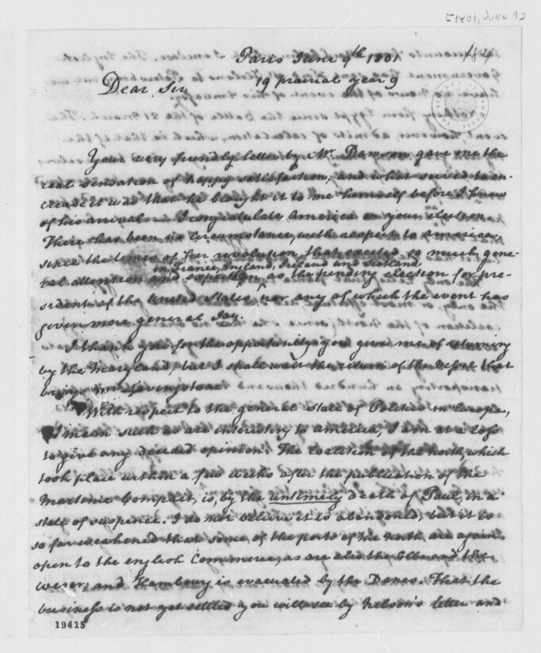 [1801, June 9]
184
Paris June 9th 1801
Dear Sir 19 Prairial year 9
Your very friendly letter by Mr. Dawson gave me the
real sensation of happy satisfaction, and what served to en-
crease it was that he brought it to me himself before I knew
of his arrival. I congratulate America on your election.
There has been no circumstance, with respect to America
since the times of her revolution, that excited so much gene-
in France, England, Ireland and Scotland
ral attention and expectation, as the pending election for pre-
sident of the United States, nor any of which the event has
given more general Joy.
I thank you for the opportunity you give me of returning
by the Maryland, but I shall wait the return of the vessel that
brings Mr. Livingstone.
With respect to the general state of Politics in Europe,
I mean such as are interesting to America, I am at a loss
to give any decided opinion. The Coalition of the North, which
took place within a few weeks after the publication of the
Maritime Compact, is, by the untimely death of Paul, in a
state of suspence. I do not believe it is abandoned, but it is
so far weakened that some of the ports of the North are again
open to the english Commerce, as are also the Elbe and the
Weser, and Hamburg is evacuated by the Danes. That the
business is not yet settled you will see by Nelson's letter and
19415